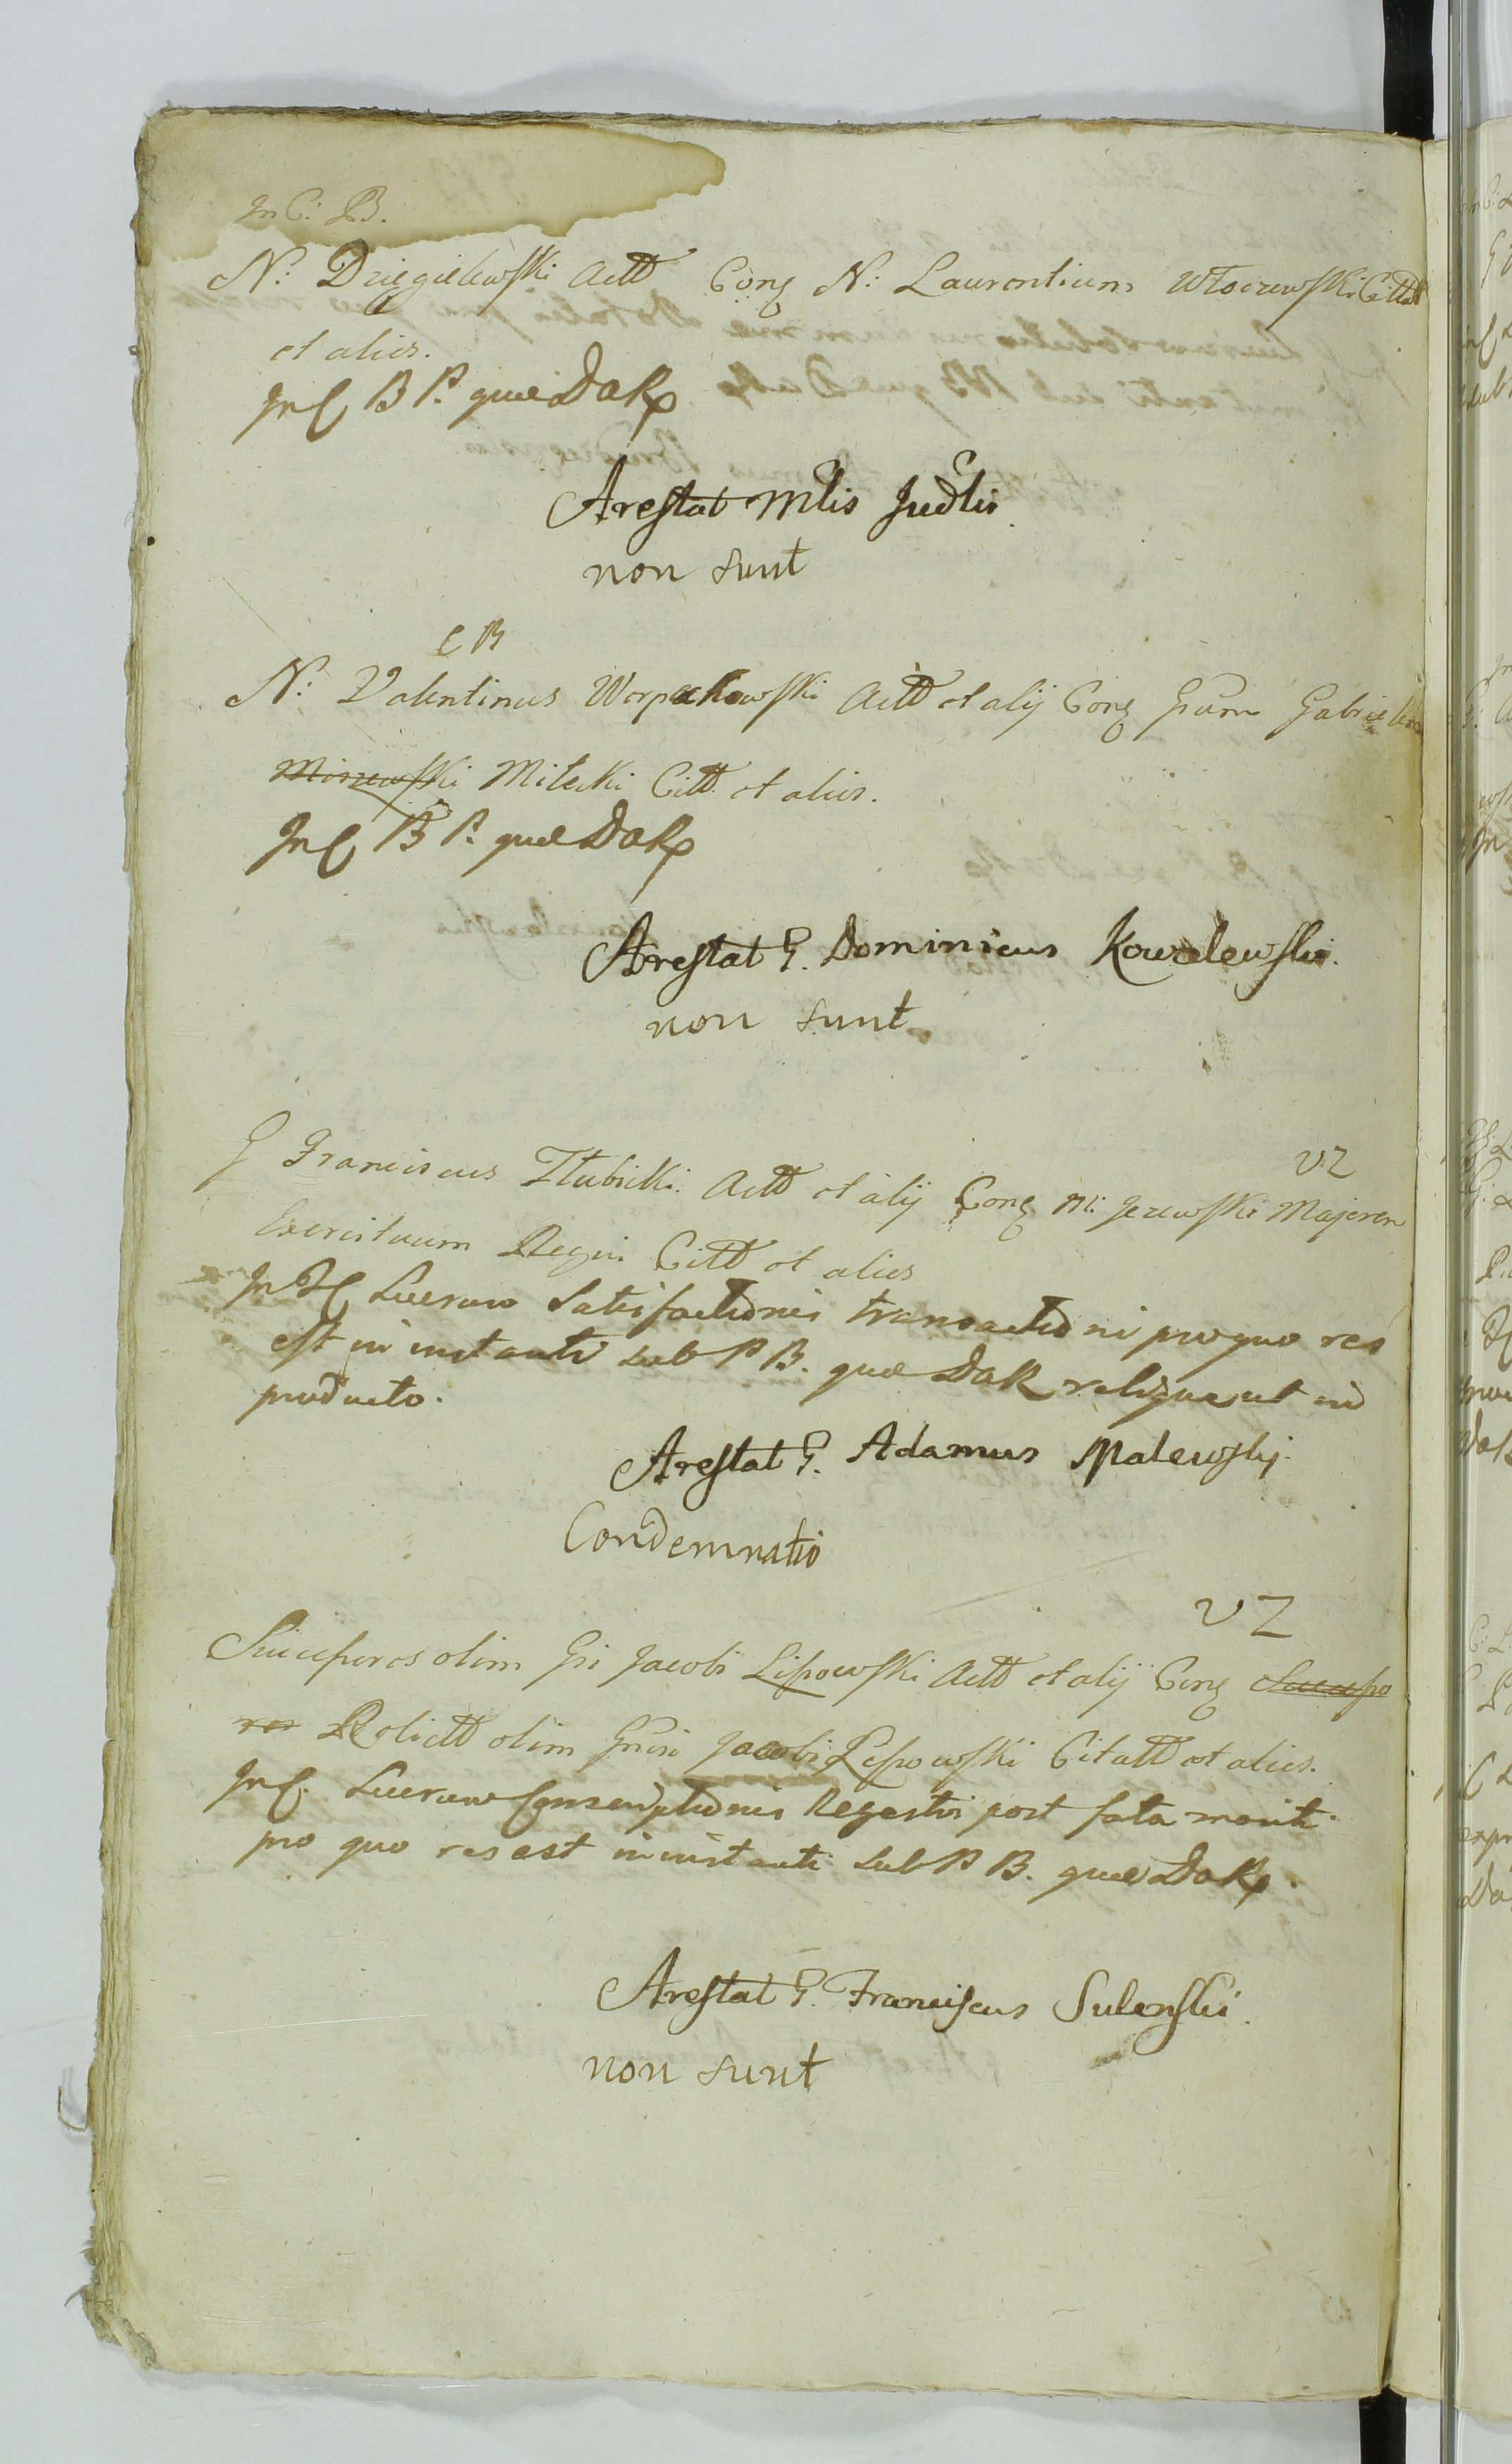 In C: B.
N: Dzięgielewski Actt Cong N: Laurentium Włoczewski Citt
et alios.
In C B P. quæ DaRp
Arestat Mtis Judtis
non sunt
C B
N: Valentinus Worpakowski Actt et alij Cong Gsum Gabrielem
Miszewski Milecki Citt et alios.
In C B P. quæ DaRp
Arestat G. Dominicus Kowalewski.
non sunt
VZ
G Franciscus Słubicki Actt et alij Cong M: Jezewski Majorem
Exercituum Regni Citt et alios
In C Lucrum Satisfactionis transactioni pro quo res
est in instanti sub P B. quæ DaR reliqua ut in
producto.
Arestat G. Adamus Malewskj.
Condemnatio
VZ
Successores olim Gsi Jacobi Lipowski Actt et alij Cong Successo
res Relictt olim Gnsi Jacobi Lipowski Citatt et alios.
In C. Lucrum Conscriptionis Regestri post fata mariti
pro quo res est in instanti sub P B. quæ DaRp.
Arestat G. Franciscus Sulenski.
non sunt